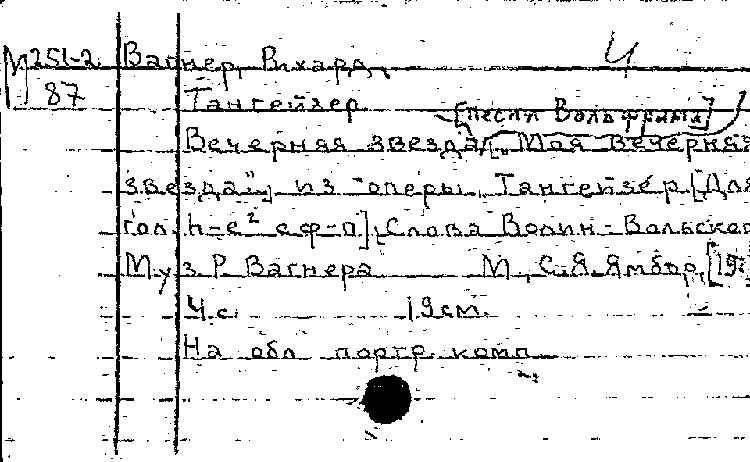 М251-2 Вагнер, Рихард. Ч
87 Тангейзер
[песня Вольфрама]
Вечерная звезда [„Моя вечерная
звезда"] из оперы Тангейзер [Для
гол. h-e² с ф-п]. Слова Волин-Вольского
Муз. Р. Вагнера М., С.Я. Ямбор, [19
4 с. 19 см.
На обл. портр. комп.